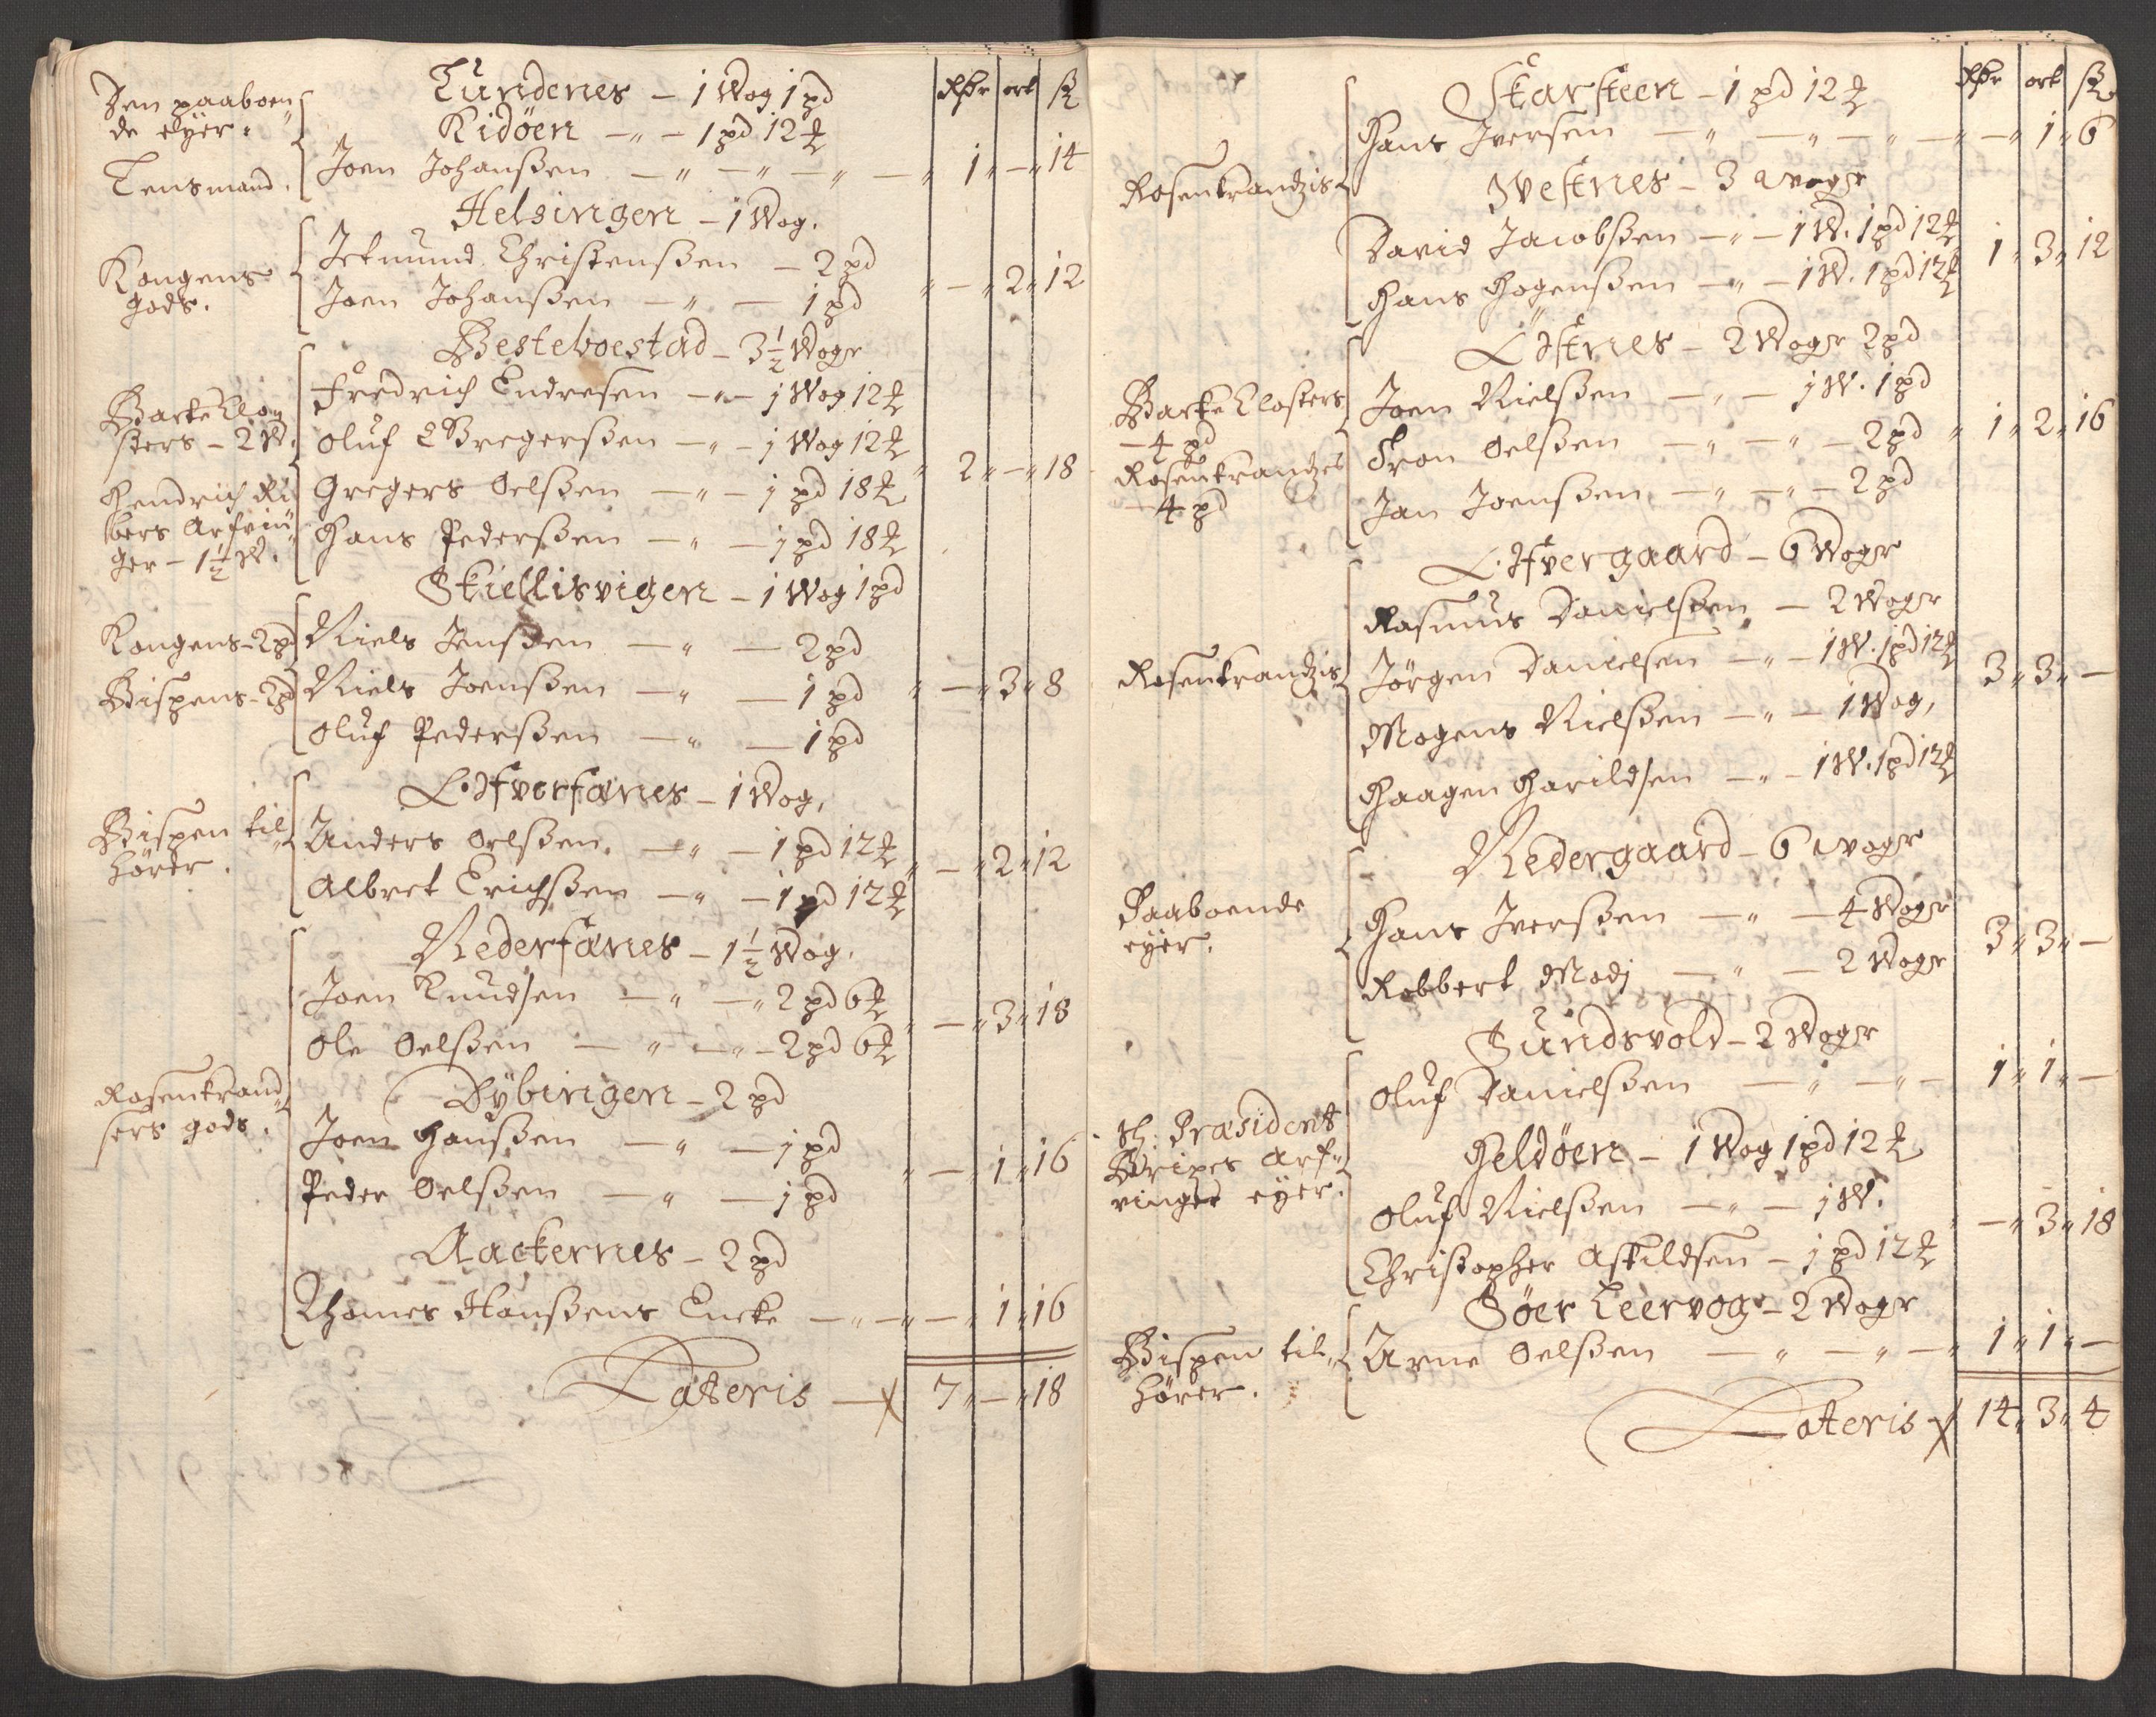 Rdr ort ß
Den paaboen
de eyer.
Tundenes – 1 Wog 1 pd
Kidöen – „ – 1 pd 12 ℔
Lensmand.
Joen Johanßen – „ – „ – „ – „ 1 „ – „ 14
Helsingen – 1 Wog.
Kongens
gods.
Jetmund Christenßen – 2 pd
Joen Johanßen – „ – 1 pd
„ – „ 2 „ 12
Besteboestad – 3½ Wogr
Backe Clo
sters – 2 W.
Fredrich Endresen – „ – 1 Wog 12 ℔
Oluf Gregerßen – „ – 1 Wog 12 ℔
„ 2 „ – „ 18
Hendrich Ri
bers Arfvin
ger – 1½ W.
Gregers Oelßen – „ – 1 pd 18 ℔
Hans Pederßen – „ – 1 pd 18 ℔
Skiellisvigen – 1 Wog 1 pd
Kongens – 2 pd
Niels Jenßen – „ – 2 pd
Bispens – 2 pd
Niels Joenßen – „ – 1 pd
„ – „ 3 „ 8
Oluf Pederßen – „ – 1 pd
Öfverfanes – 1 Wog,
Bispen til
hörer.
Anders Oelßen. – „ – 1 pd 12 ℔
Albret Erichßen – „ – 1 pd 12 ℔
„ – „ 2 „ 12
Nederfanes – 1½ Wog.
Joen Knudsen – „ – „ 2 pd 6 ℔
Ole Oelßen – „ – „ – 2 pd 6 ℔
„ – „ 3 „ 18
Rosenkrand
sers gods.
Dybingen – 2 pd
Joen Hanßen – „ – 1 pd
Peder Oelßen – „ – 1 pd
„ – „ 1 „ 16
Aackernes – 2 pd
Thomes Hanßens Encke – „ – „ – „ 1 „ 16
Lateris – 7 „ – „ 18
Rdr ort ß
Skarsteen – 1 pd 12 ℔
Hans Jversen – „ – „ – „ – „ – „ 1 „ 6
Rosenkrandzis
Westnes – 3 wogr
David Jacobßen – „ – 1 W. 1 pd 12 ℔
Hans Hogenßen – „ – 1 W. 1 pd 12 ℔
1 „ 3 „ 12
Östnes – 2 Wogr 2 pd
Backe Closters
– 4 pd
Rosenkrandzes
– 4 pd
Joen Nielßen – „ – 1 W. 1 pd
Tron Oelßen – „ – „ – 2 pd
Jan Joenßen – „ – „ – 2 pd
„ 1 „ 2 „ 16
Öfvergaard – 6 Wogr
Rasmus Danielßen. – 2 Wogr
Rosenkrandzis
Jörgen Danielsen – „ – 1 W. 1 pd 12 ℔
Mogens Nielßen – „ – 1 Wog,
Haagen Harildsen – „ – 1 W. 1 pd 12 ℔
3 „ 3 „ –
Nedergaard – 6 wogr
Paaboende
eyer.
Hans Jverßen – „ – 4 Wogr
Robbert Modj – „ – 2 Wogr
3 „ 3 „ –
Sundsvold – 2 Wogr
Oluf Danielßen – „ – „ – 1 „ 1 „ –
Sl: Præsident
Gripes Arf
vinger eyer.
Heldöen – 1 Wog 1 pd 12 ℔
Oluf Nielßen – „ – 1 W.
Christopher Askildsen – 1 pd 12 ℔
„ – „ 3 „ 18
Söer Leervog – 2 Wogr
Bispen til
hörer.
Arne Oelßen – „ – „ – „ 1 „ 1 „ –
Lateris 14 „ 3 „ 4